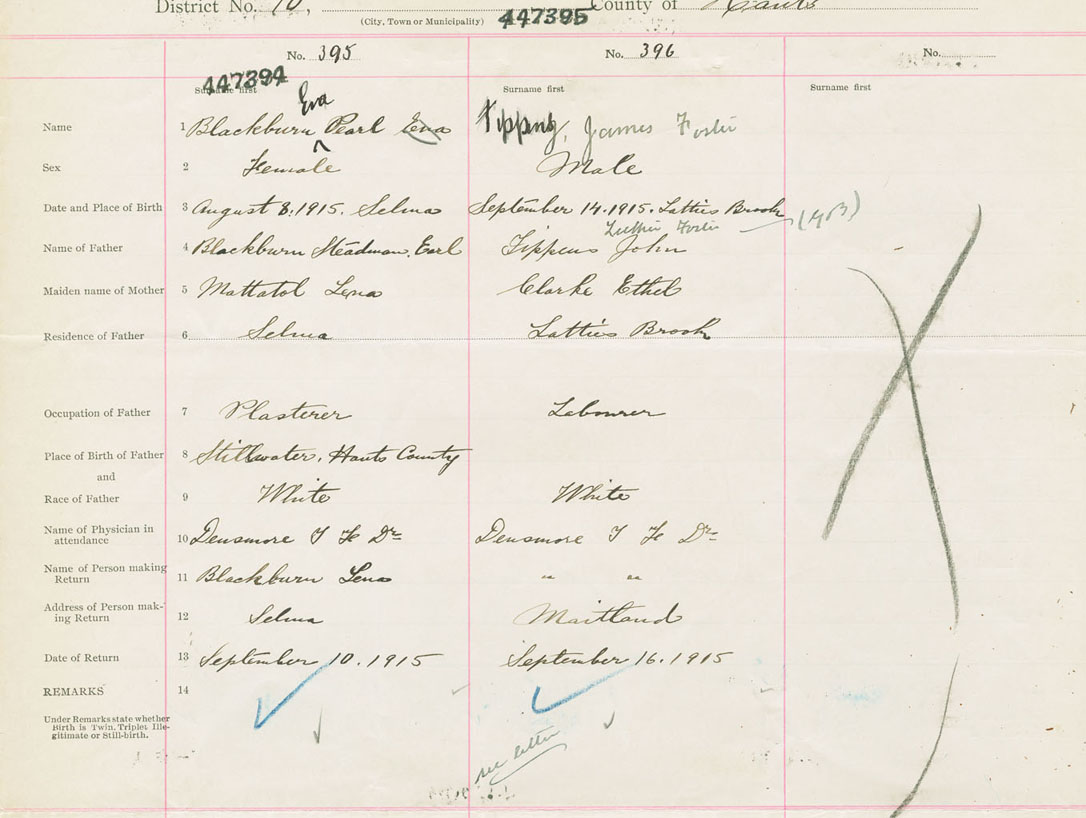 District No. 10, County of Hants
(City, Town or Municipality) 447395
No. 395 No. 396 No.
447394
Surname first Surname first Surname first
Eva
Name 1 Blackburn Pearl Ena Tipping, James Foster
^
Sex 2 Female Male
Date and Place of Birth 3 August 8. 1915. Selma September 14. 1915. Latties Brook
Luther Foster
Name of Father 4 Blackburn Steadman, Earl Tippens John
Maiden name of Mother 5 Mattatol Lena Clarke Ethel
Residence of Father 6 Selma Latties Brook
Occupation of Father 7 Plasterer Labourer
Place of Birth of Father 8 Stillwater, Hants County
and
Race of Father 9 White White
Name of Physician in
attendance 10 Densmore T F Dr Densmore T F Dr
Name of Person making
Return 11 Blackburn Lena " "
Address of Person mak-
ing Return 12 Selma Maitland
Date of Return 13 September 10. 1915 September 16. 1915
REMARKS 14
Under Remarks state whether
Birth is Twin, Triplet, Ille-
gitimate or Still-birth.
see letter